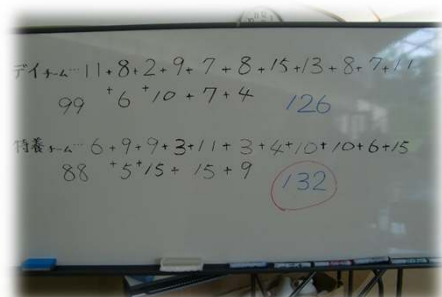 デイチーム… 11 + 8 + 2 + 9 + 7 + 8 + 15 + 13 + 8 + 7 + 11
99 + 6 + 10 + 7 + 4 126
特養チーム… 6 + 9 + 9 + 3 + 11 + 3 + 4 + 10 + 10 + 6 + 15
88 + 5 + 15 + 15 + 9 132